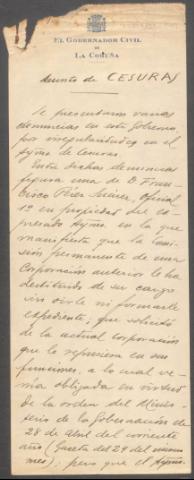 EL GOBERNADOR CIVIL
DE
LA CORUÑA
Asunto de CESURAS
Se presentaron varias
denuncias en este Gobierno,
por irregularidades en el
Aytmo. de Cesuras.
Entre dichas denuncias
figura una de D. Fran-
cisco Pérez Suárez, oficial
1º en propiedad del ex-
presado Aytmo. en la que
manifiesta que la Comi-
sión permanente de una
Corporación anterior le ha
destituido de su cargo
sin oirle ni formarle
expediente; que solicitó
de la actual corporación
que le repusiera en sus
funciones, a lo cual ve-
nía obligada en virtud
de la orden del Minis-
terio de la Gobernación de
28 de Abril del corriente
año (Gaceta del 29 del mismo
mes); pero que el Aytmo.